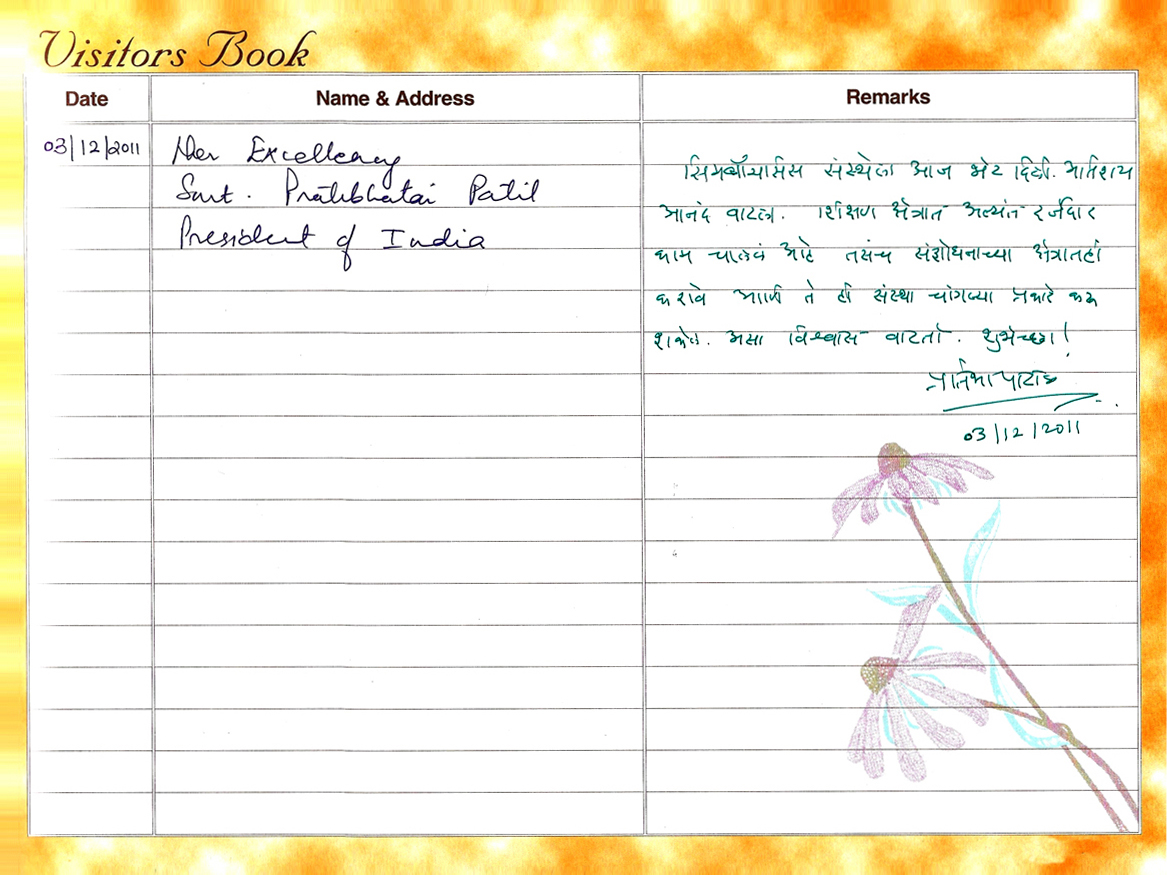 Visitors Book
Date Name & Address Remarks
03/12/2011 Her Excellency
Smt. Pratibhatai Patil
President of India
सिमबॉयासिस संस्थेला आज भेट दिली. अतिशय
आनंद वाटला. शिक्षण क्षेत्रात अत्यंत दर्जेदार
काम चालवं आहे तसंच संशोधनाच्या क्षेत्रातही
करावे आणि ते ही संस्था चांगल्या प्रकारे करू
शकेल. असा विश्वास वाटतो. शुभेच्छा!
प्रतिभा पाटील
03/12/2011